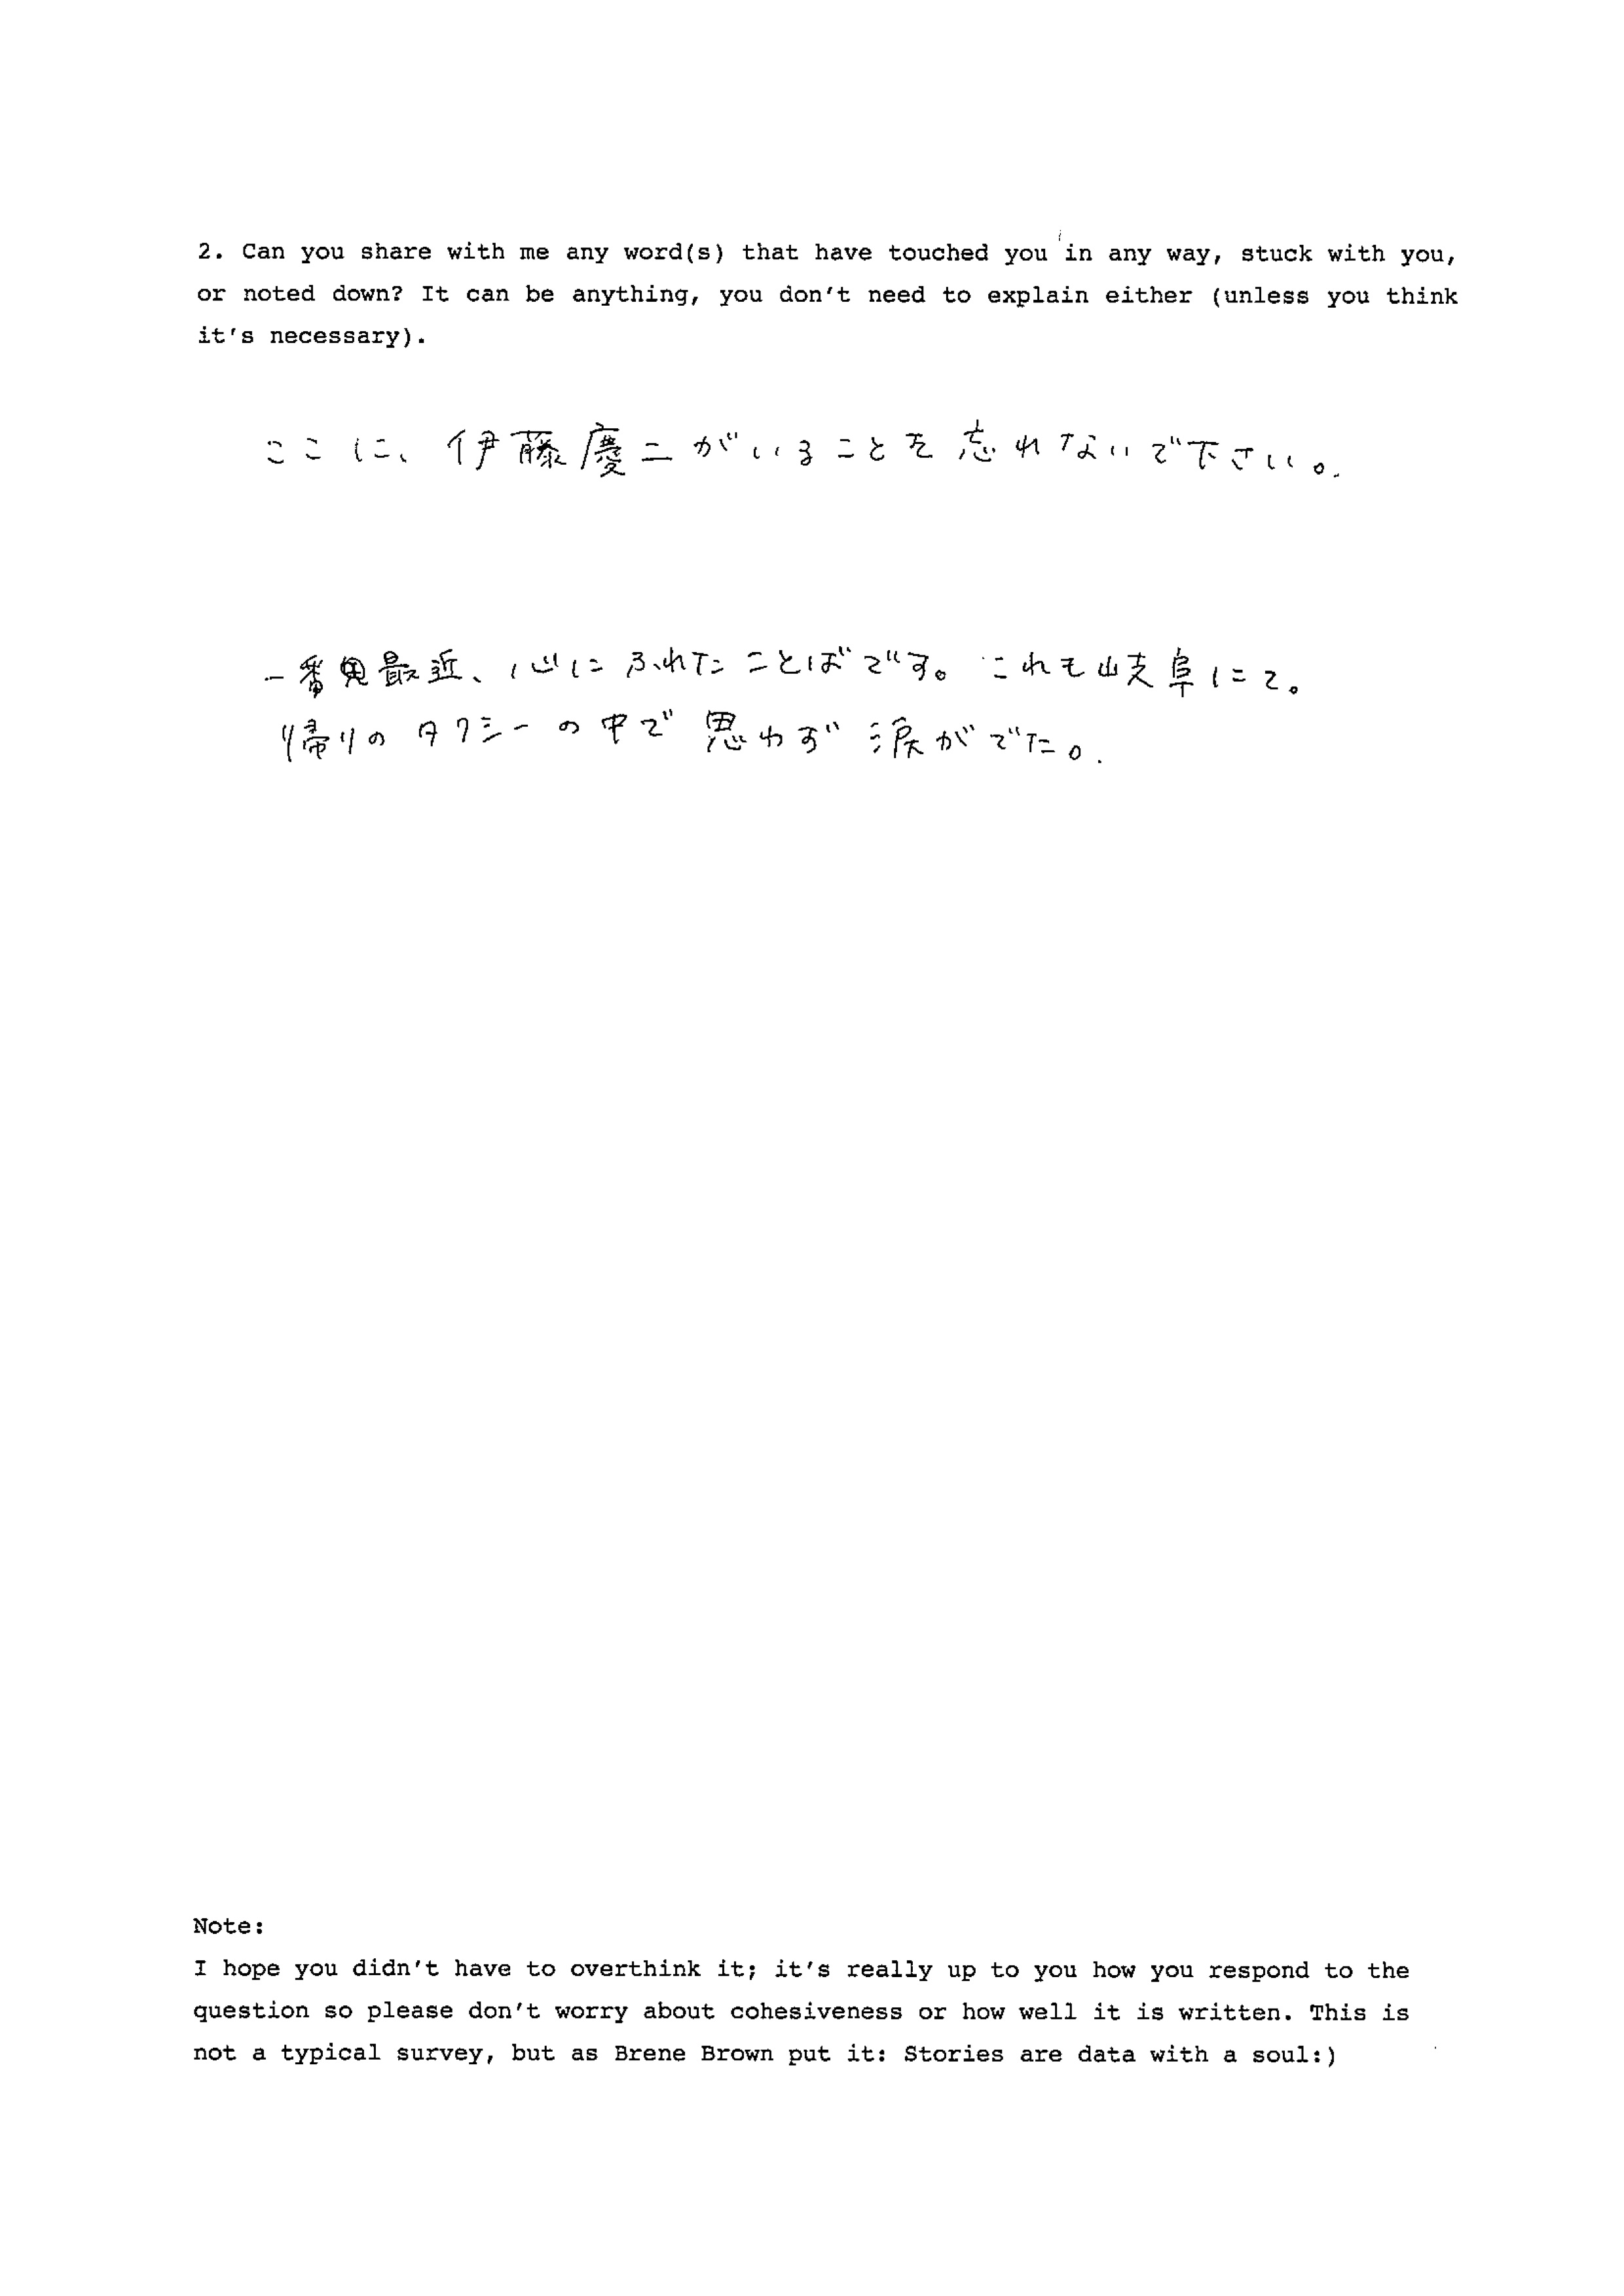 2. Can you share with me any word(s) that have touched you in any way, stuck with you,
or noted down? It can be anything, you don't need to explain either (unless you think
it's necessary).
ここに、伊藤慶二がいることを忘れないで下さい。
一番最近、心にふれたことばです。これも岐阜にて。
帰りのタクシーの中で思わず涙がでた。
Note:
I hope you didn't have to overthink it; it's really up to you how you respond to the
question so please don't worry about cohesiveness or how well it is written. This is
not a typical survey, but as Brene Brown put it: Stories are data with a soul:)